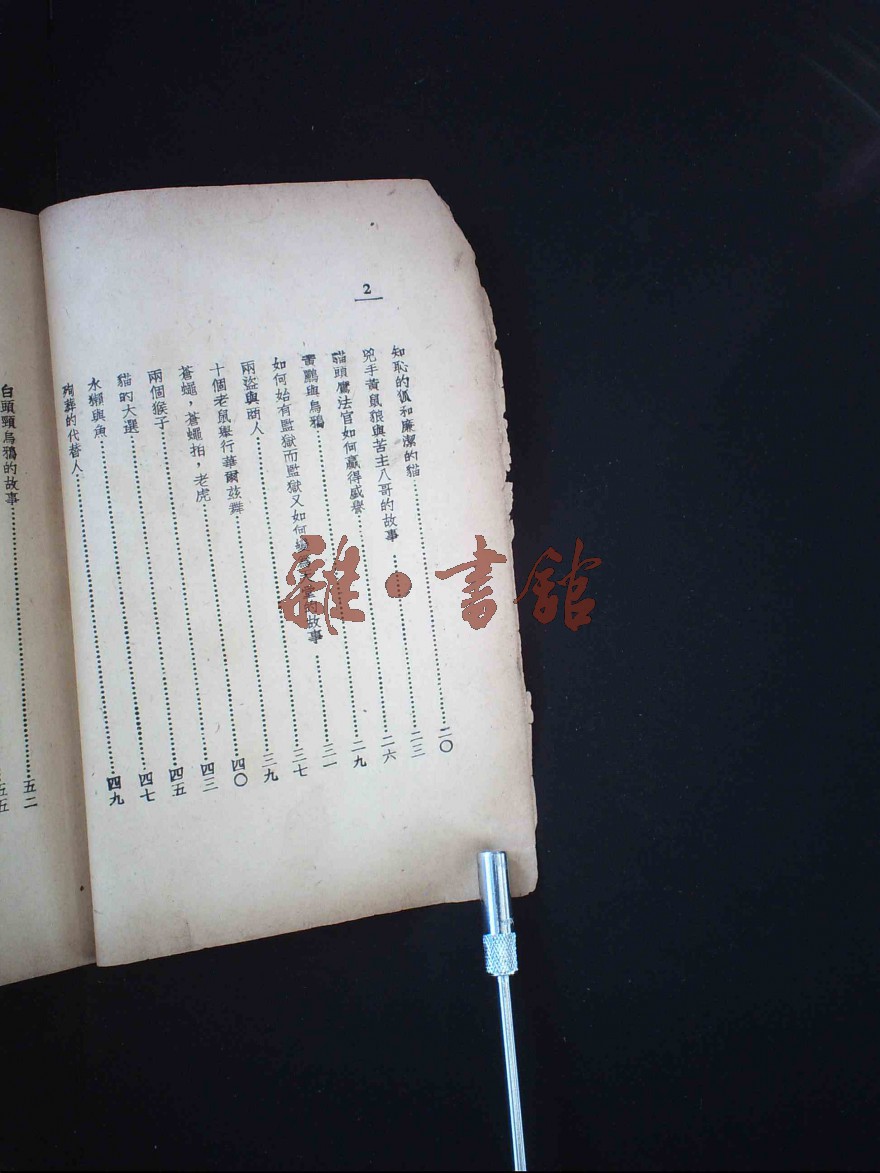 2
知恥的狐和廉潔的貓……二〇
兇手黃鼠狼與苦主八哥的故事……二三
貓頭鷹法官如何贏得盛譽……二六
黃鸝與烏鴉……二九
如何始有監獄而監獄又如何變爲天堂的故事……三一
兩盜與商人……三七
十個老鼠舉行華爾茲舞……三九
蒼蠅，蒼蠅拍，老虎……四〇
兩個猴子……四三
貓的大選……四五
水獺與魚……四七
殉葬的代替人……四九
白頭頸烏鴉的故事……五二
五五
雜·書館